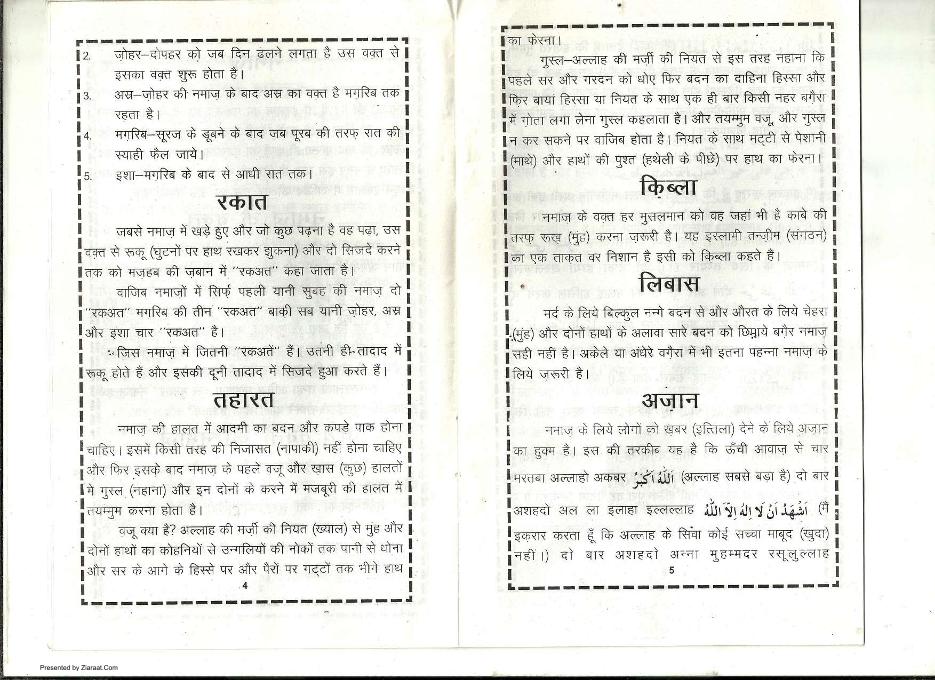 2. ज़ोहर–दोपहर को जब दिन ढलने लगता है उस वक़्त से
इसका वक़्त शुरू होता है।
3. अस्र–ज़ोहर की नमाज़ के बाद अस्र का वक़्त है मग़रिब तक
रहता है।
4. मग़रिब–सूरज के डूबने के बाद जब पूरब की तरफ़ रात की
स्याही फैल जाये।
5. इशा–मग़रिब के बाद से आधी रात तक।
रकात
जबसे नमाज़ में खड़े हुए और जो कुछ पढ़ना है वह पढ़ा, उस
वक़्त से रूकू (घुटनों पर हाथ रखकर झुकना) और दो सिजदे करने
तक को मज़हब की ज़बान में "रकअत" कहा जाता है।
वाजिब नमाजों में सिर्फ़ पहली यानी सुबह की नमाज़ दो
"रकअत" मगरिब की तीन "रकअत" बाकी सब यानी ज़ोहर, अस्र
और इशा चार "रकअत" है।
जिस नमाज़ में जितनी "रकअतें" हैं। उतनी ही तादाद में
रूकू होते हैं और इसकी दूनी तादाद में सिजदे हुआ करते हैं।
तहारत
नमाज़ की हालत में आदमी का बदन और कपड़े पाक होना
चाहिए। इसमें किसी तरह की निजासत (नापाकी) नहीं होना चाहिए
और फिर इसके बाद नमाज़ के पहले वजू और खास (कुछ) हालतों
मे गुस्ल (नहाना) और इन दोनों के करने में मजबूरी की हालत में
तयम्मुम करना होता है।
वजू क्या है? अल्लाह की मर्जी की नियत (ख्याल) से मुंह और
दोनों हाथों का कोहनियों से उन्गलियों की नोकों तक पानी से धोना
और सर के आगे के हिस्से पर और पैरों पर गट्टों तक भीगे हाथ
4
का फेरना।
गुस्ल–अल्लाह की मर्ज़ी की नियत से इस तरह नहाना कि
पहले सर और गरदन को धोए फिर बदन का दाहिना हिस्सा और
फिर बायां हिस्सा या नियत के साथ एक ही बार किसी नहर बग़ैरा
में ग़ोता लगा लेना गुस्ल कहलाता है। और तयम्मुम वजू, और गुस्ल
न कर सकने पर वाजिब होता है। नियत के साथ मट्टी से पेशानी
(माथे) और हाथों की पुश्त (हथेली के पीछे) पर हाथ का फेरना।
किब्ला
नमाज़ के वक़्त हर मुसलमान को वह जहां भी है काबे की
तरफ़ रूख़ (मुंह) करना ज़रूरी है। यह इस्लामी तन्ज़ीम (संगठन)
का एक ताकत वर निशान है इसी को किब्ला कहते है।
लिबास
मर्द के लिये बिल्कुल नन्गे बदन से और औरत के लिये चेहरा
(मुंह) और दोनों हाथों के अलावा सारे बदन को छिपाये बग़ेर नमाज़
सही नहीं है। अकेले या अंधेरे वग़ैरा में भी इतना पहन्ना नमाज़ के
लिये ज़रूरी है।
अज़ान
नमाज़ के लिये लोगों को ख़बर (इत्तिला) देने के लिये अज़ान
का हुक्म है। इस की तरकीब यह है कि ऊँची आवाज़ से चार
मरतबा अल्लाहो अकबर اَللّٰهُ اَكْبَرُ (अल्लाह सबसे बड़ा है) दो बार
अशहदो अल ला इलाहा इल्लल्लाह اَشْهَدُ اَنْ لَا اِلٰهَ اِلَّا اللّٰهُ (मैं
इक़रार करता हूँ कि अल्लाह के सिवा कोई सच्चा माबूद (खुदा)
नहीं।) दो बार अशहदो अन्ना मुहम्मदर रसूलुल्लाह
5
Presented by Ziaraat.Com